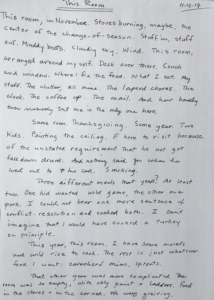 This Room
11-12-17
This room, in November. Stoves burning, maybe, the
center of the change-of-season. Stuff in, stuff
out. Muddy boots, cloudy sky, Wind. This room,
arranged around my self. Desk over there, Couch
and window. Where I fix the food. What I eat. My
stuff. The clutter, all mine. The layered chores, the
clock. The coffee cup. The mail. And how hardly
ever anybody but me is the only one here.
Same room. Thanksgiving. Same year. Two
kids. Painting the ceiling. here to visit because
of the unstated requirement that he not get
face down drunk. And nothing said
out to the Smoking.
Three different meals that year? At least
two. One kid wanted wild game, the other one
pork. I could not bear one more sentence of
conflict-resolution and cooked both. I can't
imagine that I would have ruined a turkey
on principle.
This year, this room. I have some morels
and wild rice to cook. The rest is just whatever
food I want: cranberries mine, sprouts.
That other year was more complicated. The
room was so empty, with only paint and ladders, food
in the stove in the corner. No wrong grieving.